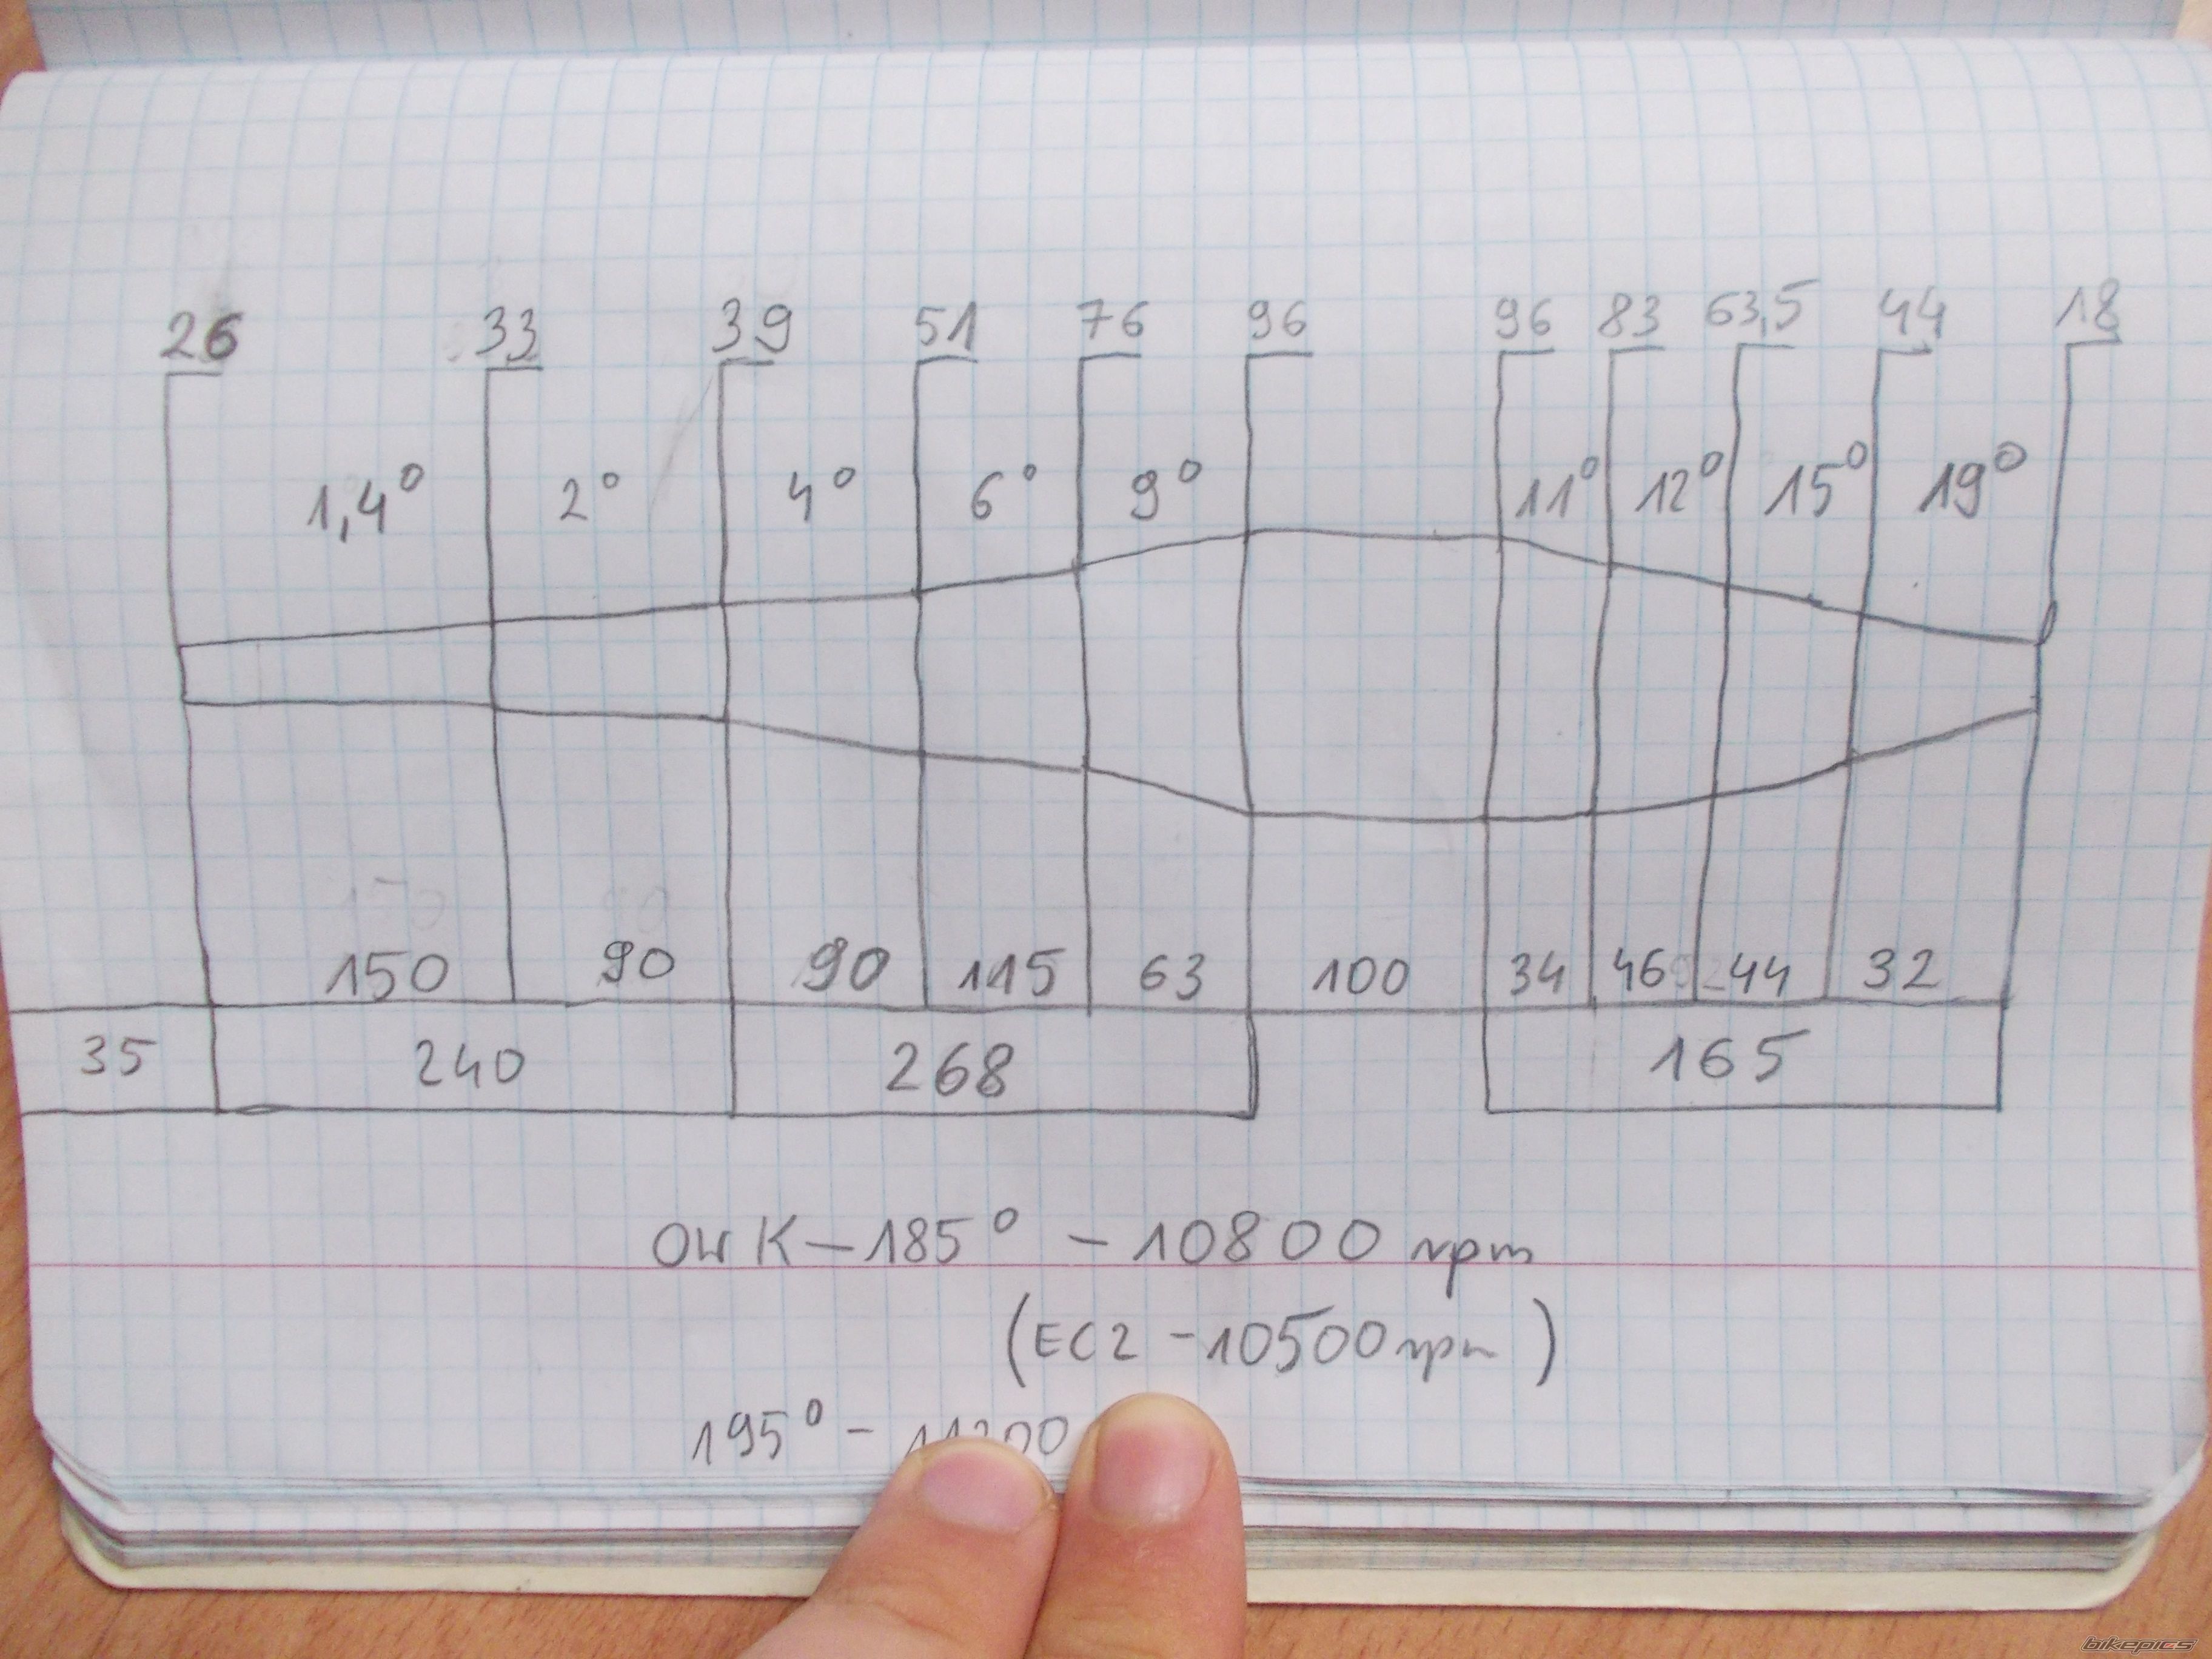 26 33 39 51 76 96 96 83 63,5 44 18
1,4° 2° 4° 6° 9° 11° 12° 15° 19°
150 90 90 115 63 100 34 46 44 32
35 240 268 165
OWK-185° - 10800 rpm
(EC2 - 10500 rpm)
195° - 11200
bikepics